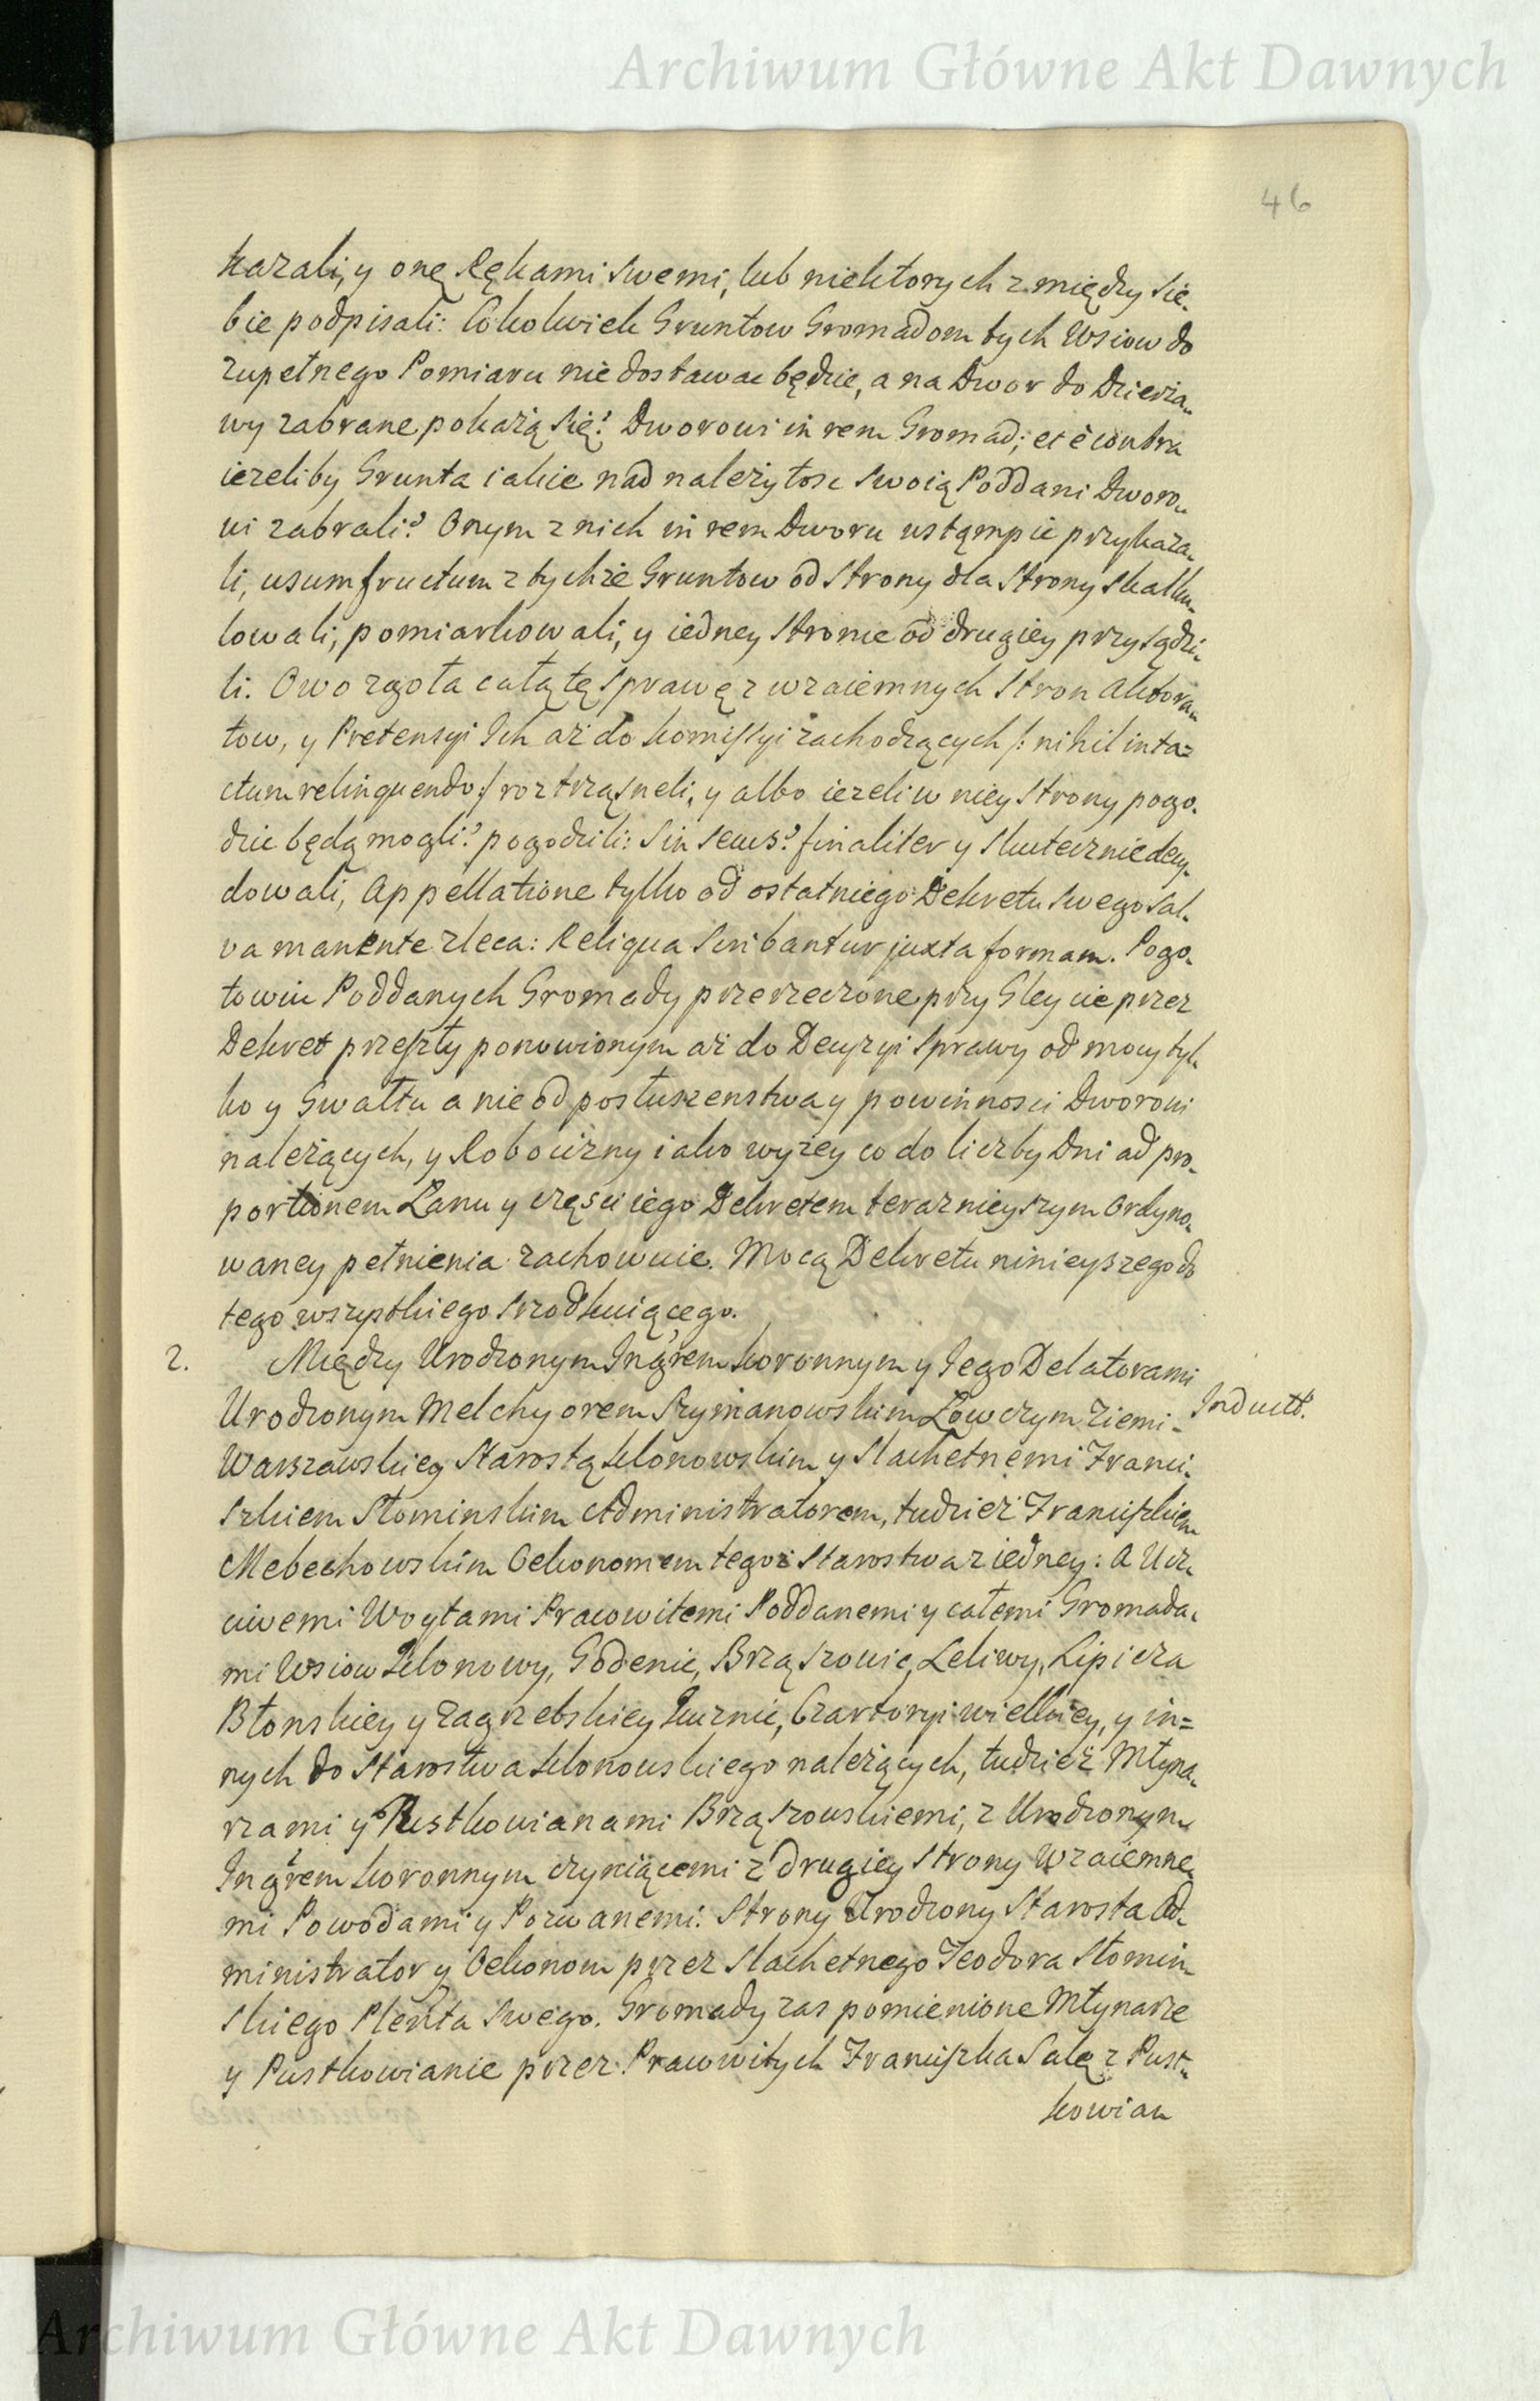 Archiwum Główne Akt Dawnych
46
kazali, y onę Rękami swemi, lub niektorych z między sie-
bie podpisali: Cokolwiek Gruntow Gromadom tych Wsiow do
zupełnego Pomiaru nie dostawac będzie, a na Dwor do Dzierza-
wy zabrane pokażą się? Dworowi in rem Gromad; et è contra
iezeliby Grunta iakie nad należytosc swoią Poddani Dworo-
wi zabrali? Onym z nich in rem Dworu ustąmpic przykaza-
li, usumfructum z tychże Gruntow od Strony dla Strony skalku-
lowali, pomiarkowali, y iedney Stronie od drugiey przysądzi-
li. Owo zgoła całą tę Sprawę z wzaiemnych Stron Aktora-
tow, y Pretensyi Ich aż do Komissyi zachodzących /: nihil inta=
ctum relinquendo :/ roztrząsneli, y albo iezeli w niey Strony pogo-
dzic będą mogli? pogodzili: Sin secus? finaliter y skutecznie decy-
dowali, Appellatione tylko od ostatniego Dekretu swego sal-
va manente zleca: Reliqua scribantur juxta formam. Pogo-
towiu Poddanych Gromady przerzeczone przy Gleycie przez
Dekret przeszły ponowionym aż do Decyzyi Sprawy od mocy tyl-
ko y Gwałtu a nie od posłuszenstwa y powinnosci Dworowi
należących, y Robocizny iako wyżey co do liczby Dni ad pro-
portionem Łanu y częsci iego Dekretem teraznieyszym ordyno-
waney pełnienia zachowuie. Mocą Dekretu ninieyszego do
tego wszystkiego srzodkuiącego.
2. Między Urodzonym Ingrem Koronnym y Iego Delatorami
Indukt.
Urodzonym Melchyorem Szymanowskim Łowczym Ziemi-
Warszawskiey Starostą Klonowskim y Slachetnemi Franci-
szkiem Słominskim Administratorem, tudzież Franciszkiem
Mebechowskim Oekonomem tegoż Starostwa z iedney: A Ucz-
ciwemi Woytami Pracowitemi Poddanemi y całemi Gromada-
mi Wsiow Klonowy, Godenic, Brząszowic, Leliwy, Lipicza
Błonskiey y Zagrzebskiey Kuznic, Czartoryi wielkiey, y in=
nych do Starostwa Klonowskiego należących, tudzież Młyna-
rzami y Pustkowianami Brząszowskiemi, z Urodzonym
Ingrem Koronnym czyniącemi z drugiey Strony Wzaiemne-
mi Powodami y Pozwanemi: Strony Urodzony Starosta Ad-
ministrator y Oekonom przez Slachetnego Teodora Słomin-
skiego Plenta swego. Gromady zas pomienione Młynarze
y Pustkowianie przez Pracowitych Franciszka Salę z Pust-
kowian
Archiwum Główne Akt Dawnych